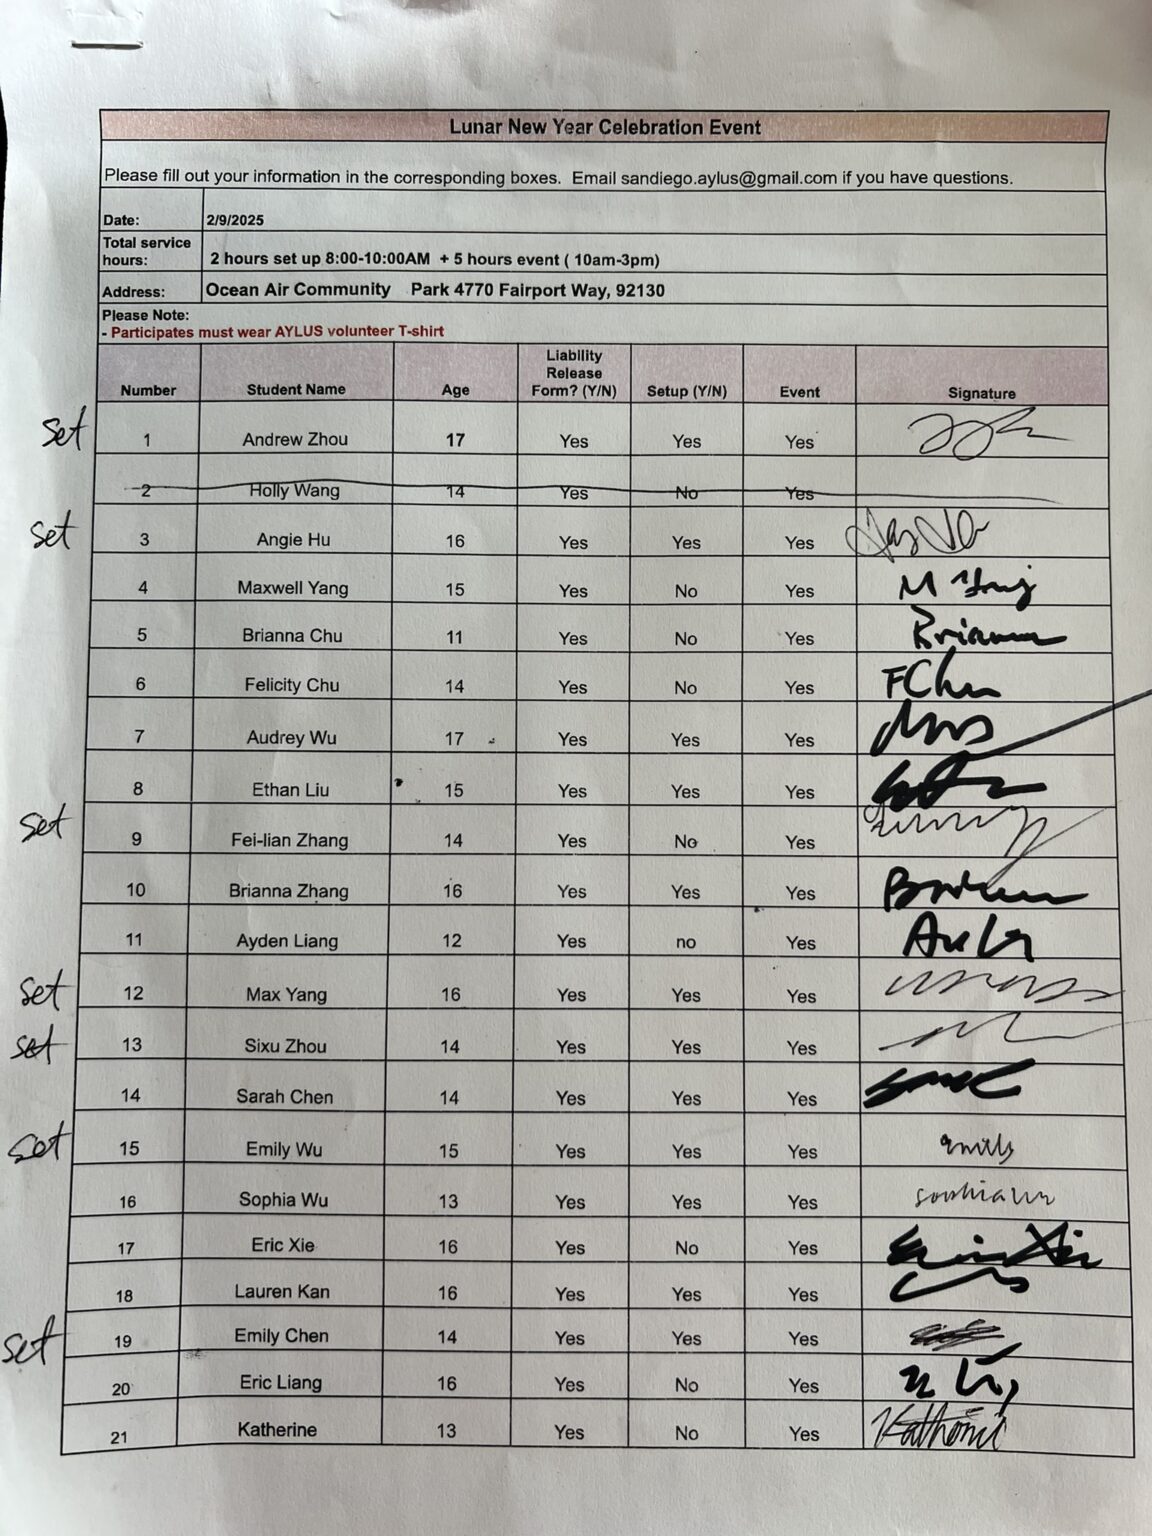 Lunar New Year Celebration Event
Please fill out your information in the corresponding boxes. Email sandiego.aylus@gmail.com if you have questions.
Date: 2/9/2025
Total service hours: 2 hours set up 8:00-10:00AM + 5 hours event ( 10am-3pm)
Address: Ocean Air Community Park 4770 Fairport Way, 92130
Please Note:
- Participates must wear AYLUS volunteer T-shirt
Number Student Name Age Liability Release Form? (Y/N) Setup (Y/N) Event Signature
set 1 Andrew Zhou 17 Yes Yes Yes
2 Holly Wang 14 Yes No Yes
set 3 Angie Hu 16 Yes Yes Yes
4 Maxwell Yang 15 Yes No Yes M Yang
5 Brianna Chu 11 Yes No Yes Brianna
6 Felicity Chu 14 Yes No Yes FChu
7 Audrey Wu 17 Yes Yes Yes
8 Ethan Liu 15 Yes Yes Yes
set 9 Fei-lian Zhang 14 Yes No Yes
10 Brianna Zhang 16 Yes Yes Yes
11 Ayden Liang 12 Yes no Yes
set 12 Max Yang 16 Yes Yes Yes
set 13 Sixu Zhou 14 Yes Yes Yes
14 Sarah Chen 14 Yes Yes Yes
set 15 Emily Wu 15 Yes Yes Yes emily
16 Sophia Wu 13 Yes Yes Yes sophia wu
17 Eric Xie 16 Yes No Yes Eric Xie
18 Lauren Kan 16 Yes Yes Yes
set 19 Emily Chen 14 Yes Yes Yes
20 Eric Liang 16 Yes No Yes
21 Katherine 13 Yes No Yes Katherine